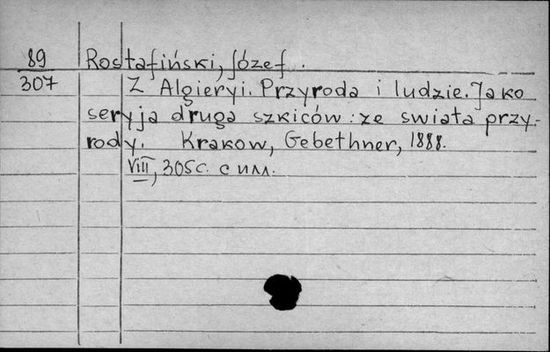 89
307
Rostafiński, Józef.
Z Algieryi. Przyroda i ludzie. Jako
seryja druga szkiców: ze swiata przy-
rody. Krakow, Gebethner, 1888.
VIII, 305 с. с илл.